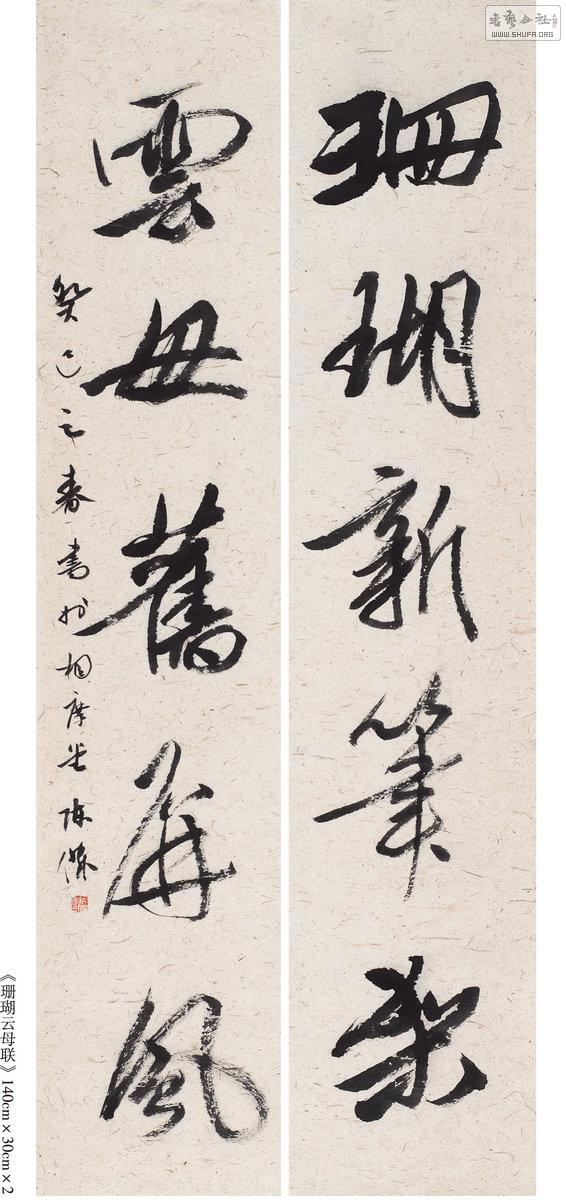 珊瑚新筆架
雲母舊屏風
癸巳之春書於相庐 陈傑
《珊瑚云母联》140cm×30cm×2
书艺公社
WWW.SHUFA.ORG